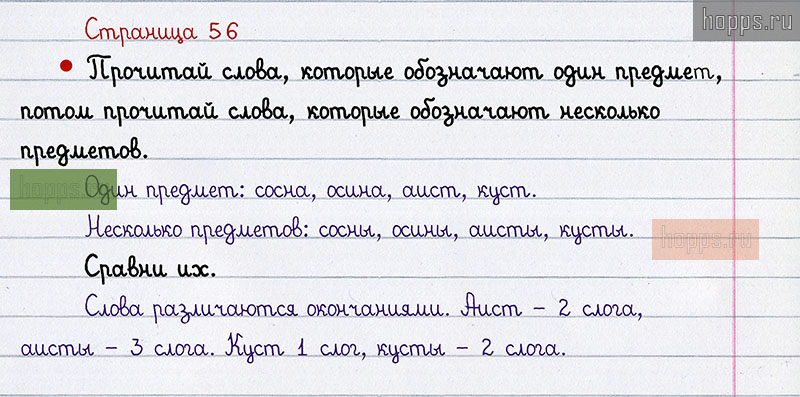 hopps.ru
Страница 56
• Прочитай слова, которые обозначают один предмет,
потом прочитай слова, которые обозначают несколько
предметов.
hopps.ru
Один предмет: сосна, осина, аист, куст.
Несколько предметов: сосны, осины, аисты, кусты.
hopps.ru
Сравни их.
Слова различаются окончаниями. Аист – 2 слога,
аисты – 3 слога. Куст 1 слог, кусты – 2 слога.